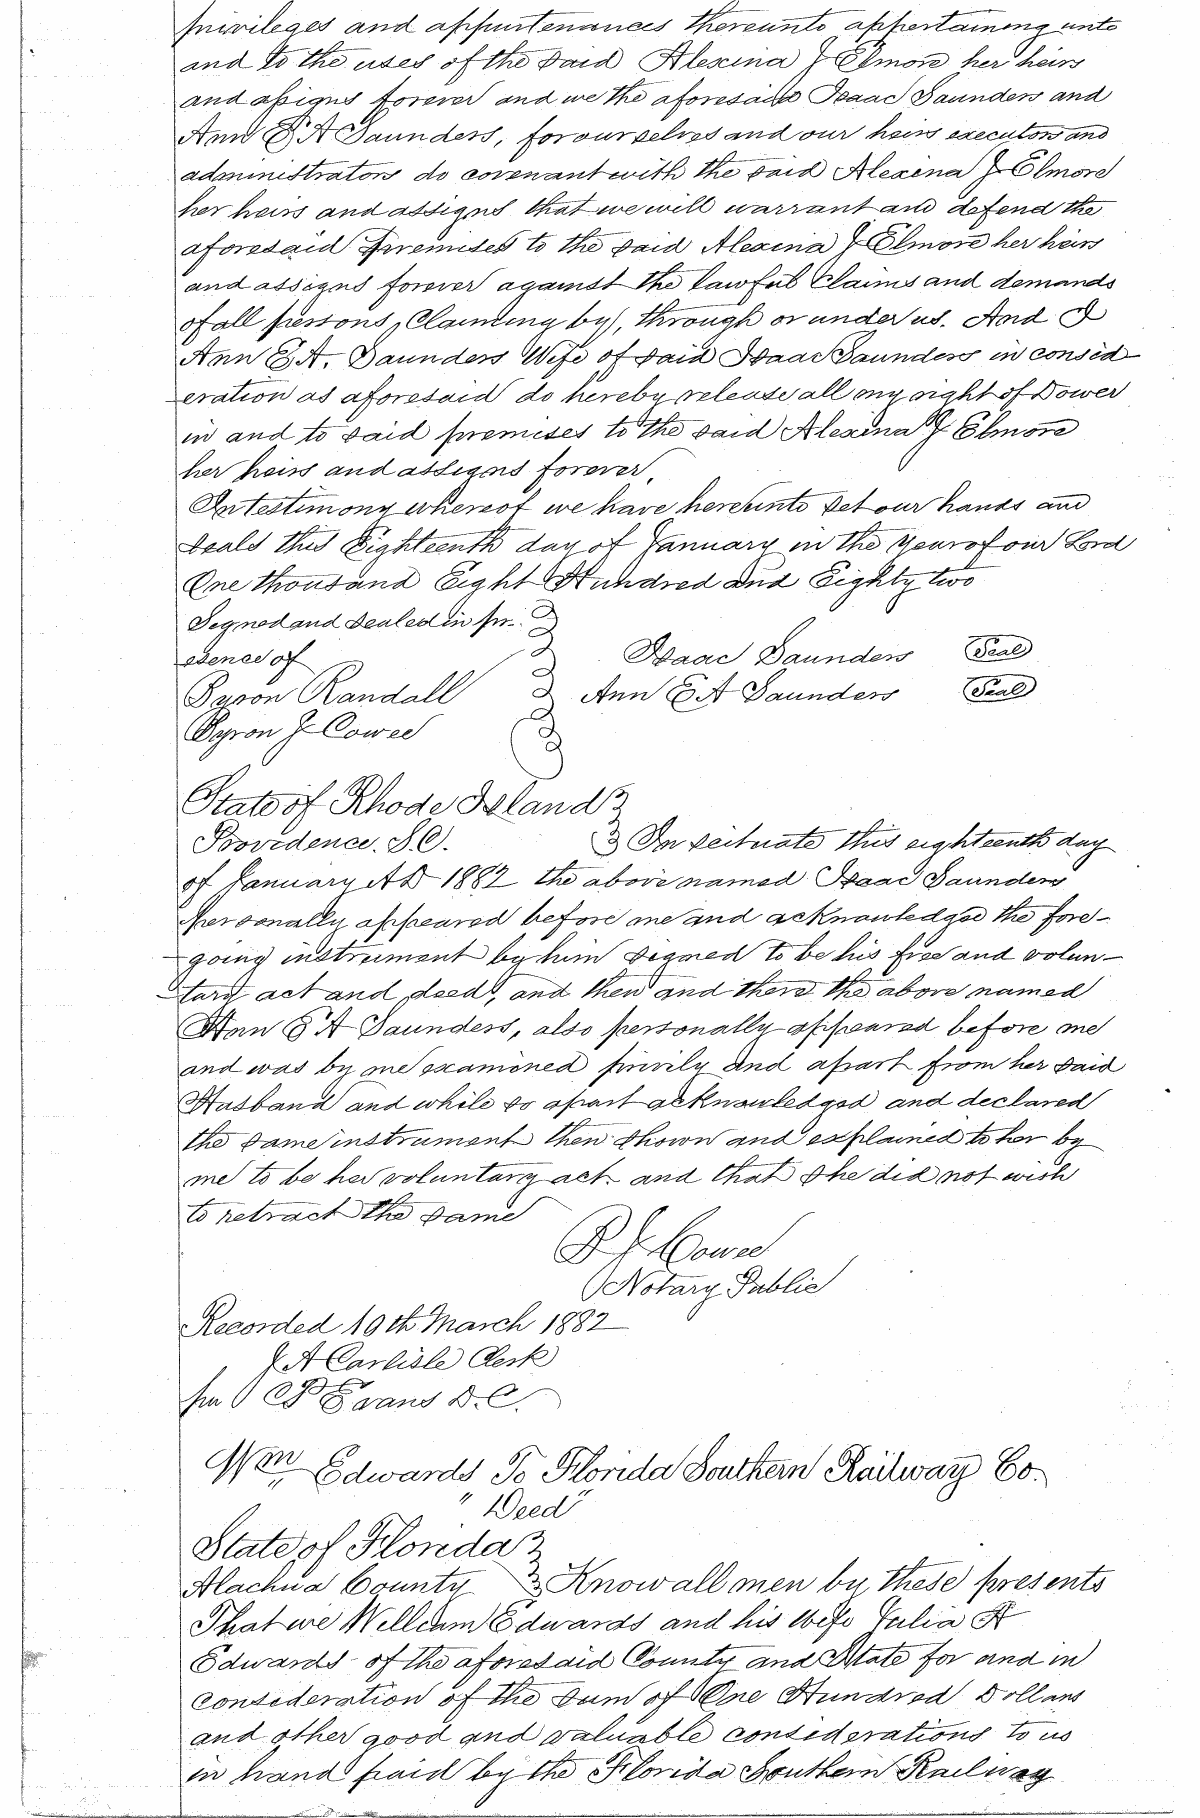 privileges and appurtenances thereunto appertaining unto
and to the uses of the said Alexina J Elmore her heirs
and assigns forever and we the aforesaid Isaac Saunders and
Ann E A Saunders, for ourselves and our heirs executors and
administrators do covenant with the said Alexina J Elmore
her heirs and assigns that we will warrant and defend the
aforesaid premises to the said Alexina J Elmore her heirs
and assigns forever against the lawful Claims and demands
of all persons, Claiming by, through or under us. And I
Ann E.A. Saunders Wife of said Isaac Saunders in consid
eration as aforesaid do hereby release all my right of Dower
in and to said premises to the said Alexina J Elmore
her heirs and assigns forever,
In testimony whereof we have hereunto set our hands and
seals this Eighteenth day of January in the year of our Lord
One thousand Eight Hundred and Eighty two
Signed and sealed in pr..
esence of Isaac Saunders (Seal)
Byron Randall Ann E A Saunders (Seal)
Byron J Cowee
State of Rhode Island
Providence. S.C. In scituate this eighteenth day
of January AD 1882 the above named Isaac Saunders
personally appeared before me and acknowledged the fore-
going instrument by him signed to be his free and volun-
tary act and deed, and then and there the above named
Ann E A Saunders, also personally appeared before me
and was by me examined privily and apart from her said
Husband and while so apart acknowledged and declared
the same instrument then shown and explained to her by
me to be her voluntary act. and that she did not wish
to retract the same
B J Cowee
Notary Public
Recorded 19th March 1882
J A Carlisle Clerk
per C P Evans D.C.
Wm Edwards To Florida Southern Railway Co.
"Deed"
State of Florida
Alachua County Know all men by these presents
That we William Edwards and his wife Julia A
Edwards of the aforesaid County and State for and in
consideration of the sum of One Hundred Dollars
and other good and valuable considerations to us
in hand paid by the Florida Southern Railway